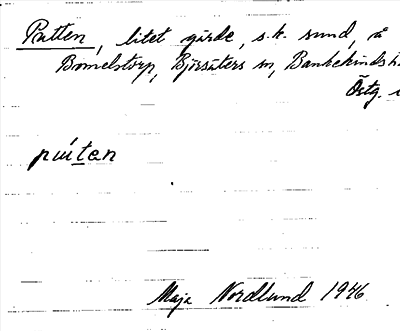 Putten, litet gärde, s.k. sund, å
Bomelstorp, Björsäters sn, Bankekinds h
Östg.
púten
Maja Nordlund 1946.